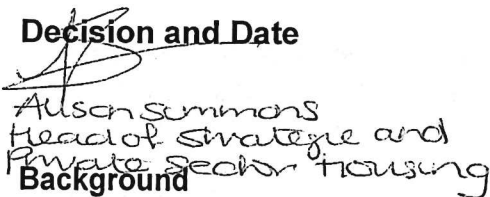 Decision and Date
Alison Summons
Head of Strategic and
Private Sector Housing
Background